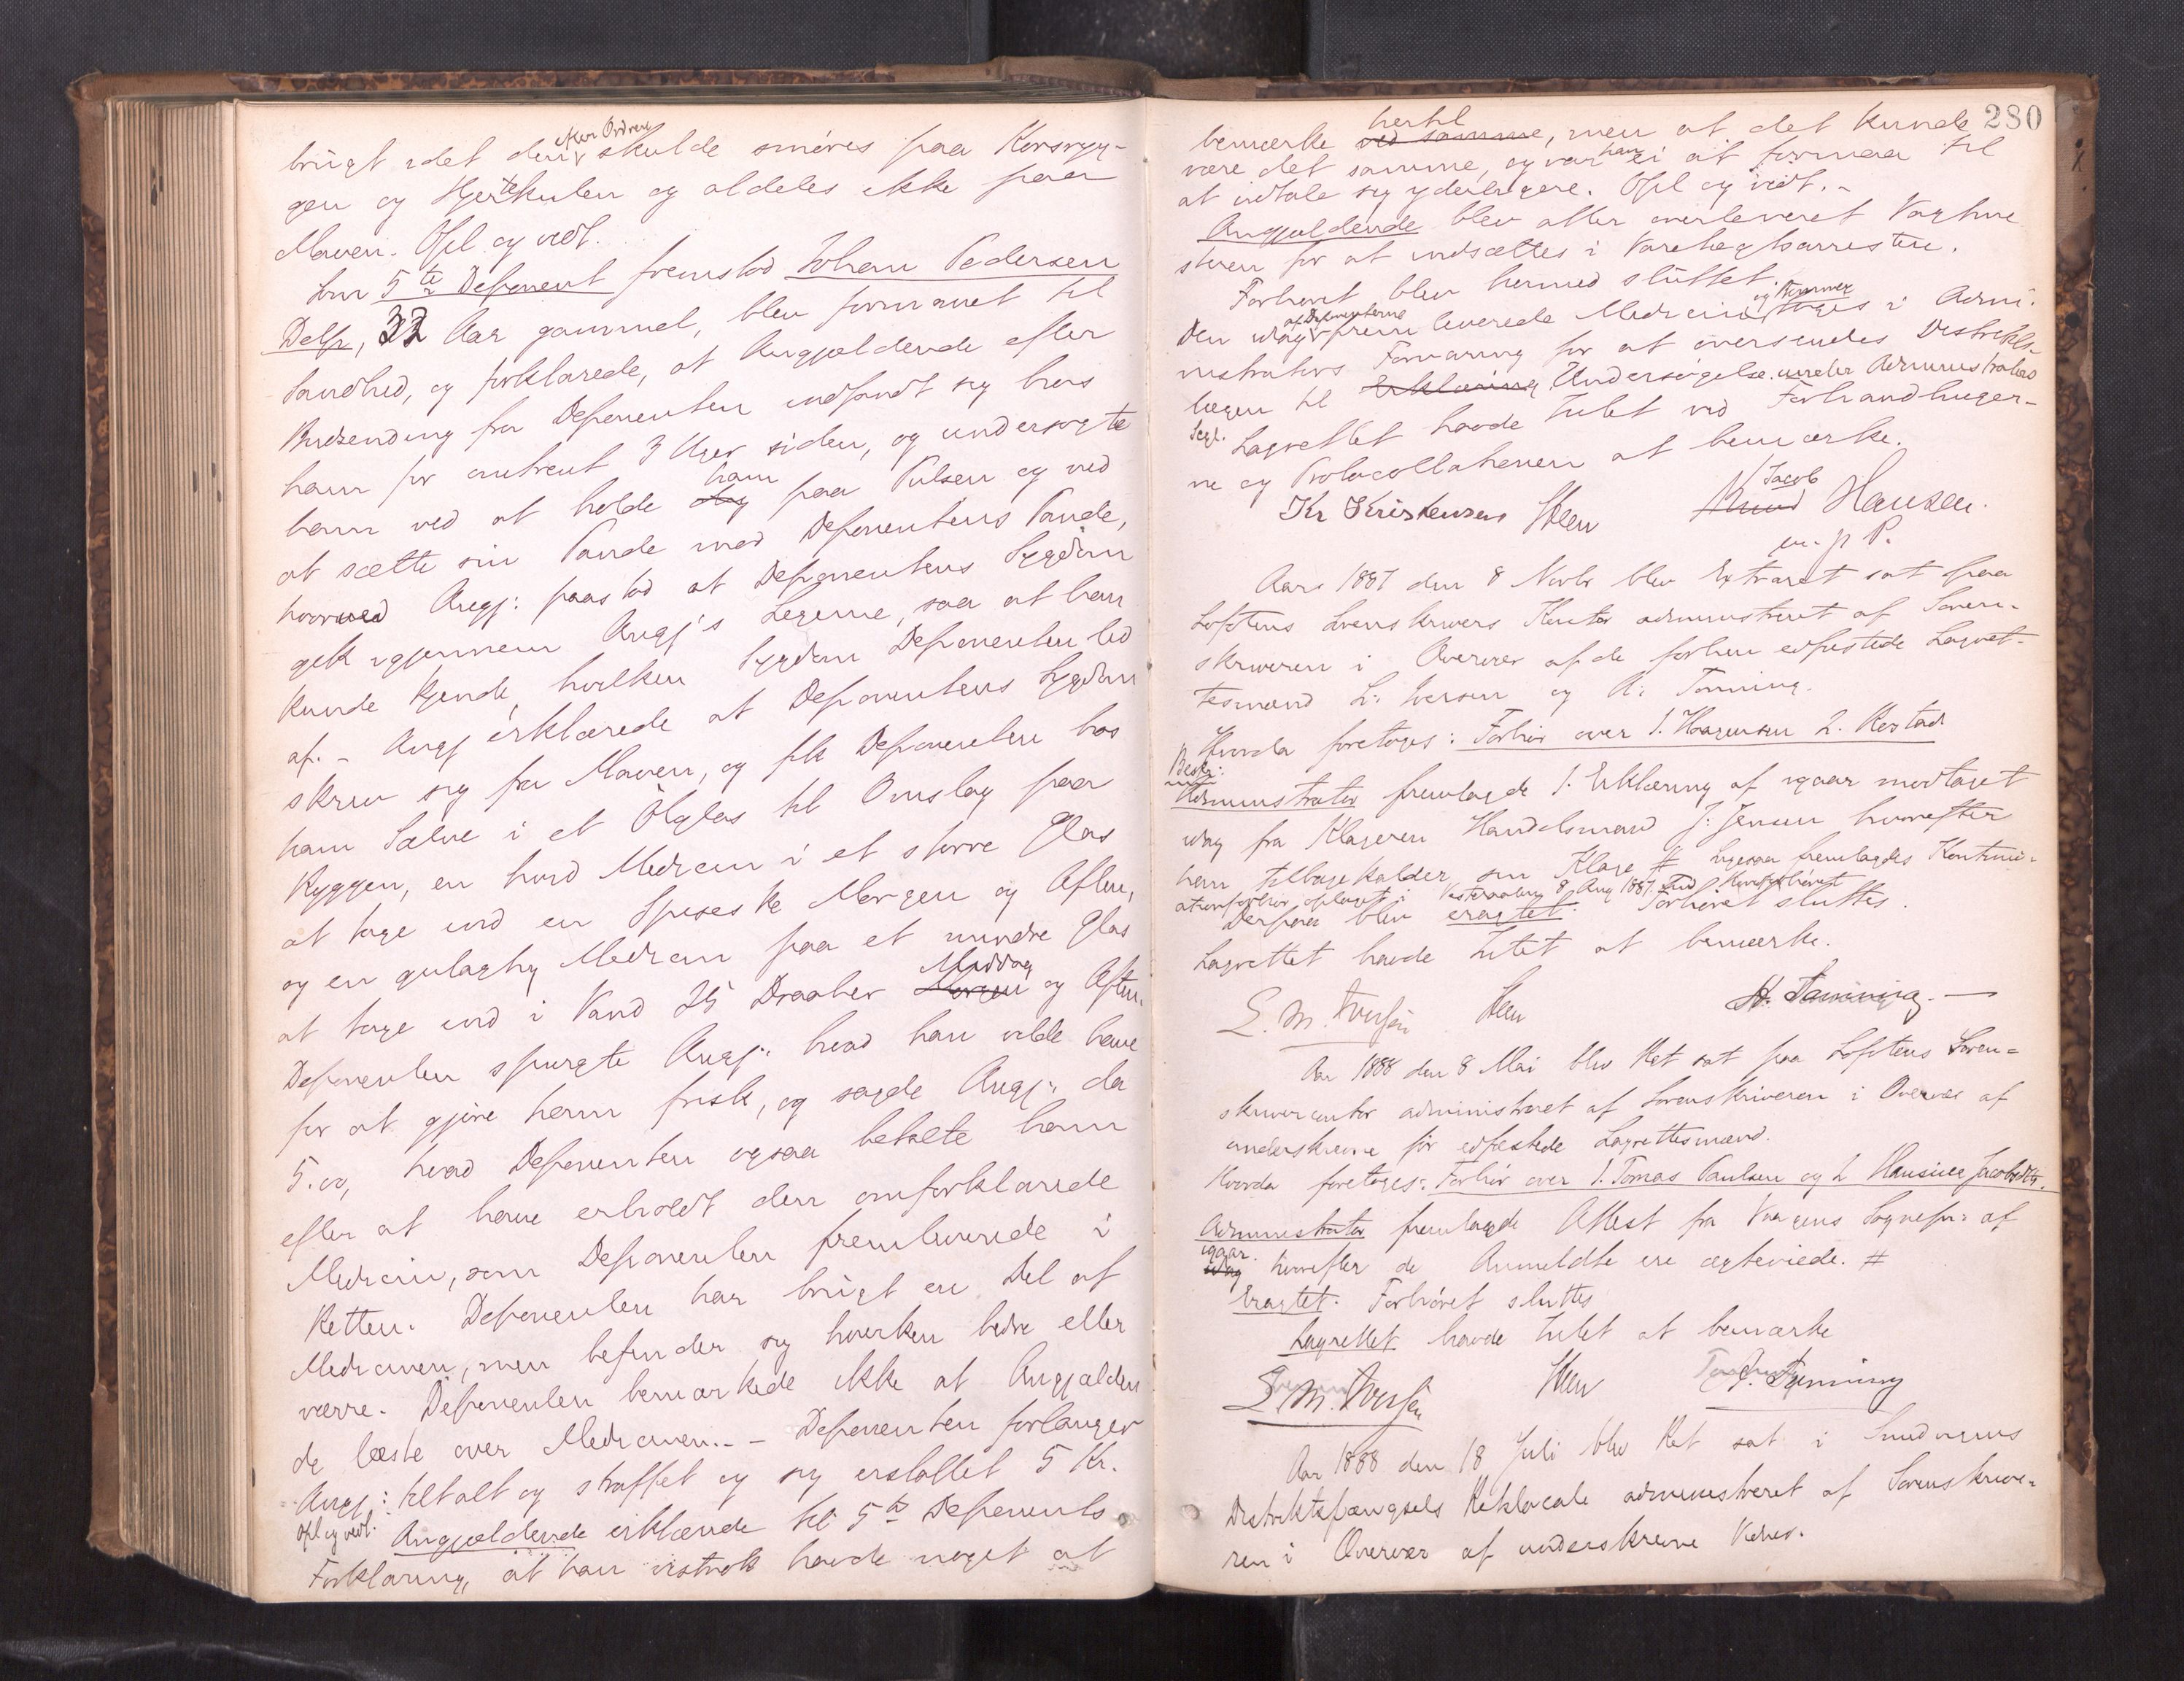 brugt idet den efter Ordren skulde smøres paa Korsryg-
gen og Hjertekulen og aldeles ikke paa
Maven. Opl og vedt.
Som 5te Deponent fremstod Johan Pedersen
Delp, 32 Aar gammel, blev formanet til
Sandhed, og forklarede, at Angjældende efter
Budsending fra Deponenten indfandt sig hos
ham for omtrent 3 Uger siden, og undersøgte
ham ved at holde ham paa Pulsen og ved
at sætte sin Pande mod Deponentens Pande,
hvorved Angj: paastod at Deponentens Sygdom
gik igjennem Angj's Legeme, saa at han
kunde kjende, hvilken Sygdom Deponenten led
af. - Angj erklærede at Deponentens Sygdom
skrev sig fra Maven, og fik Deponenten hos
ham Salve i et Ølglas til Omslag paa
Ryggen, en hvid Medicin i et større Glas
at tage ind en Spiseske Morgen og Aften,
og en gulagtig Medicin paa et mindre Glas
at tage ind i Vand 25 Draaber Morgen Middag og Aften.
Deponenten spurgte Angj: hvad han vilde have
for at gjøre ham frisk, og sagde Angj: da
5.00, hvad Deponenten ogsaa betalte ham
efter at have erholdt den omforklarede
Medicin, som Deponenten fremleverede i
Retten. Deponenten har brugt en Del af
Medicinen, men befinder sig hverken bedre eller
værre. Deponenten bemærkede ikke at Angjælden
de læste over Medicinen. - Deponenten forlanger
Angj: tiltalt og straffet og sig erstattet 5 Kr.
Opl og vedt. Angjældende erklærede til 5te Deponents
Forklaring, at han vistnok havde noget at
280
bemærke ved samme hertil, men at det kunde
være det samme, og var han ei at formaa til
at udtale sig yderligere. Opl og vedt. -
Angjældende blev atter overleveret Vagtme
steren for at indsættes i Varetægtsarresten.
Forhøret blev hermed sluttet.
Den idag af Deponenterne fremleverede Medicin og Kommer toges i Admi-
nistrators Forvaring for at oversendes Distrikts-
lægen til Erklæring Undersøgelse under Administrators
Segl. Lagrettet havde Intet ved Forhandlinger-
ne og Protocollationen at bemærke.
Kr Kristensen Steen Knud Jacob Hansen.
m. p P.
Aar 1887 den 8 Novbr blev Extraret sat paa
Lofotens Sorenskrivers Kontor administreret af Soren-
skriveren i Overvær af de forhen edfæstede Lagret-
tesmænd L: Iversen og A: Tønning.
Hvorda foretoges: Forhør over 1. Haagensen 2. Restad
Besk:
Administrator fremlagde 1. Erklæring af igaar modtaget
idag fra Klageren Handelsmand J: Jensen hvorefter
han tilbagekalder sin Klage # ligesaa fremlagdes Kontinu-
ationsforhør optaget i Vesteraalen 8 Aug 1887.
Derpaa blev eragtet: Forhøret sluttes.
Lagrettet havde Intet at bemærke.
L. M. Iversen Steen A. Tønning. -
Aar 1888 den 8 Mai blev Ret sat paa Lofotens Soren=
skrivercontor administreret af Sorenskriveren i Overvær af
underskrevne før edfæstede Lagrettesmænd.
Hvorda foretoges: Forhør over 1. Tomas Paulsen og 2 Hansine Jacobsdtr.
Administrator fremlagde Attest fra Vaagens Sognepr: af
idag igaar hvorefter de Anmeldte ere ægteviede. #
Eragtet. Forhøret sluttes
Lagrettet havde Intet at bemærke
L. M. Iversen Steen A. Tønning
Aar 1888 den 18 Juli blev Ret sat i
Distriktsfængsels Retslocale administreret af Sorenskrive-
ren i Overvær af underskrevne Vidner.